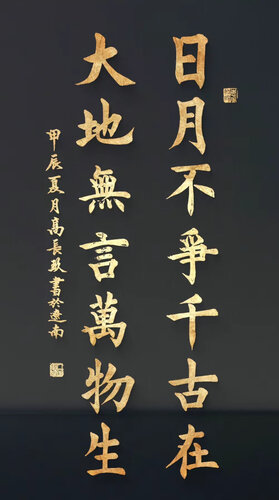 日月不爭千古在
大地無言萬物生
甲辰夏月高長玖書於遼南